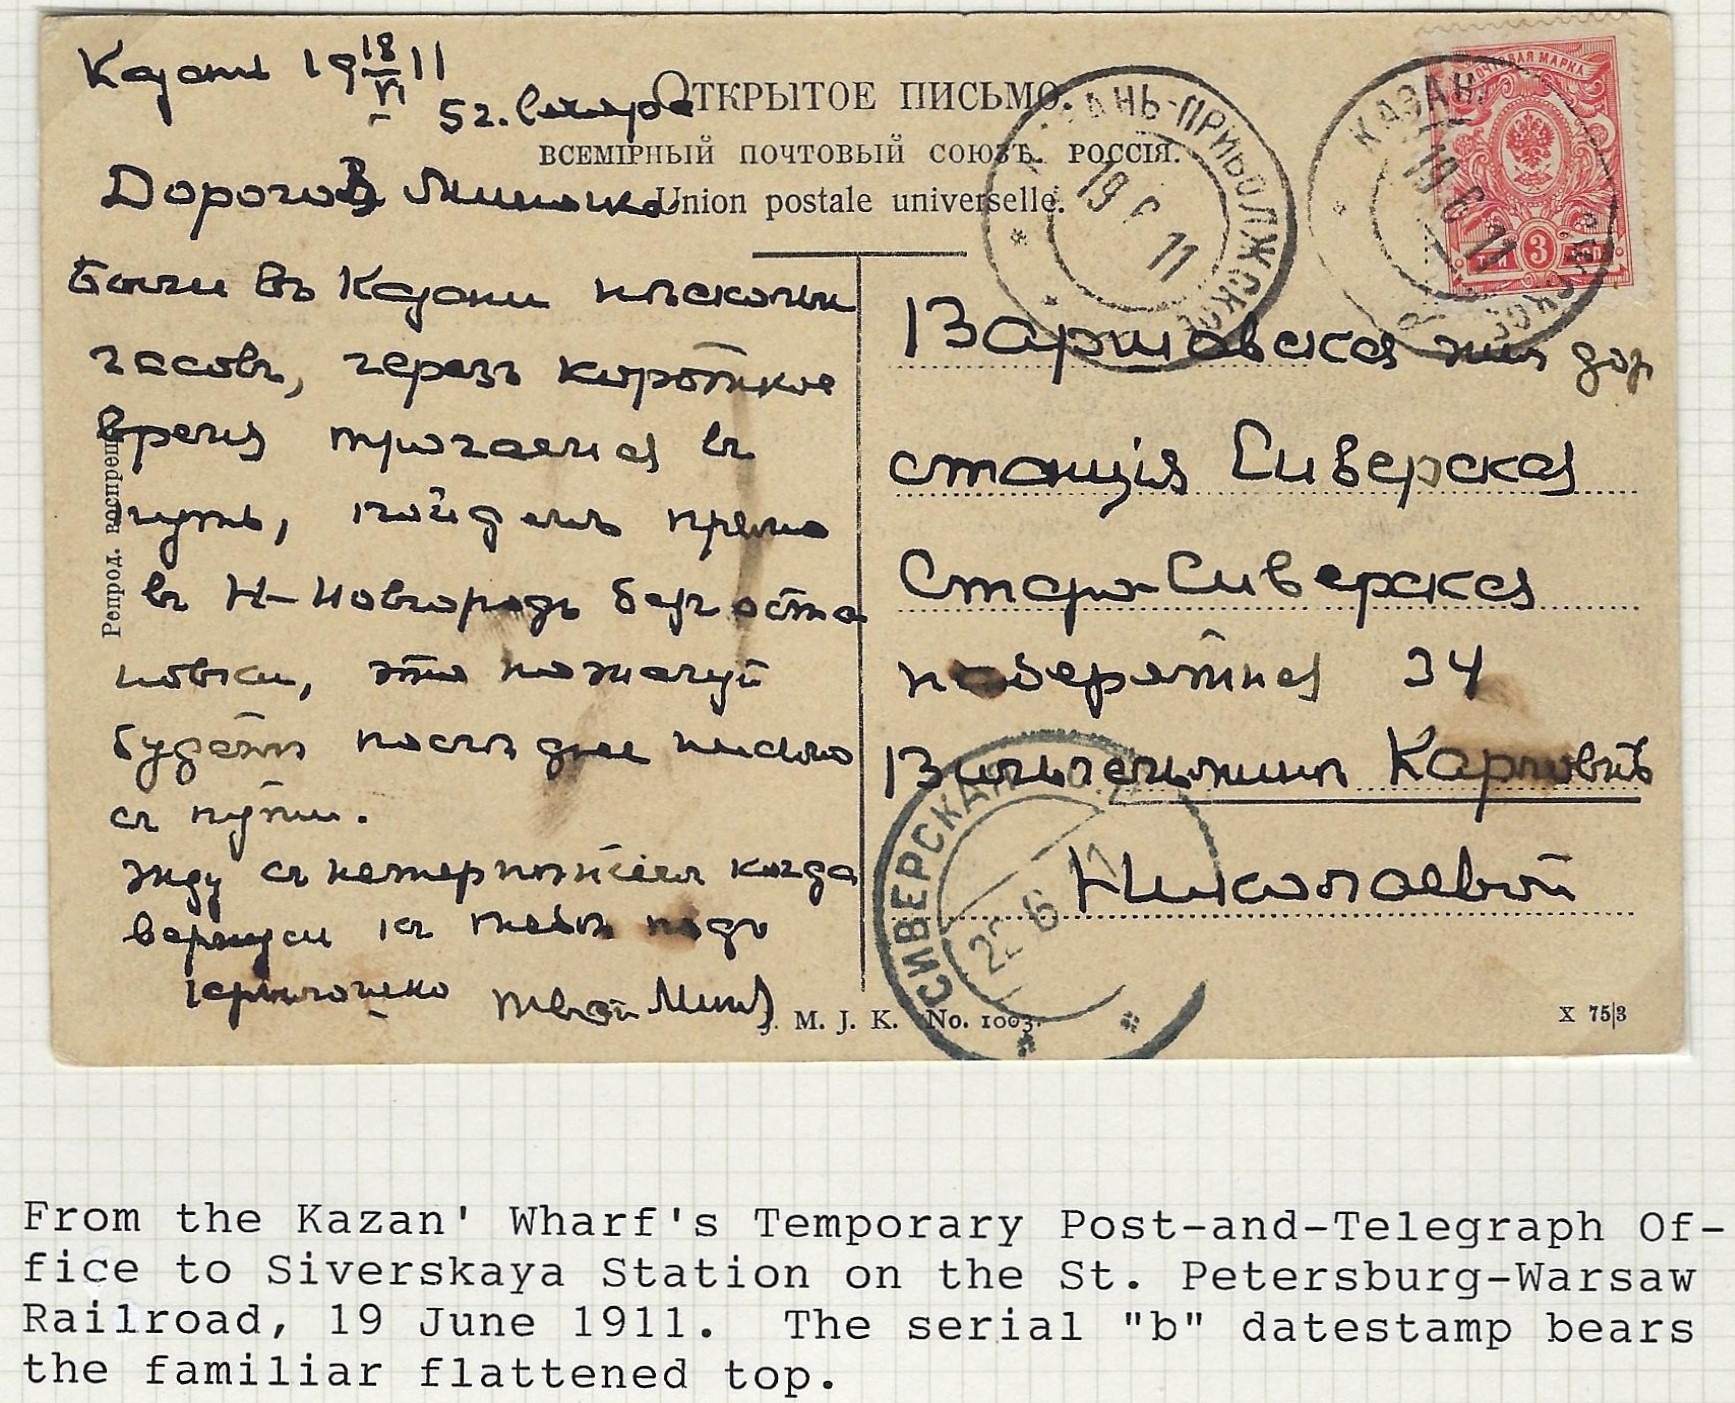 Казань 19 18/VI 11
5 г. Самара
ОТКРЫТОЕ ПИСЬМО.
ВСЕМІРНЫЙ ПОЧТОВЫЙ СОЮЗЪ. РОССІЯ.
Union postale universelle.
Дорогая Миличка
Были въ Казани нѣсколько
часовъ, черезъ короткое
время трогаемся въ
путь, пойдемъ прямо
въ Н-Новгородъ безъ оста
новки, это пожалуй
будетъ послѣднее письмо
съ пути.
Жду съ нетерпѣніемъ когда
вернусь къ тебѣ подъ
крылышко твой
Репрод. воспрещ.
КАЗАНЬ-ПРИВОЛЖСКОЕ
19 6 11
КАЗАНЬ
19 6 11
ПОЧТОВАЯ МАРКА
3
Варшавская жел дор
станція Сиверская
Старо-Сиверская
набережная 34
Вильгельминѣ Карловнѣ
Николаевой
СИВЕРСКАЯ
22 6 11
M. J. K. No. 1003.
X 75|3
From the Kazan' Wharf's Temporary Post-and-Telegraph Of-
fice to Siverskaya Station on the St. Petersburg-Warsaw
Railroad, 19 June 1911. The serial "b" datestamp bears
the familiar flattened top.